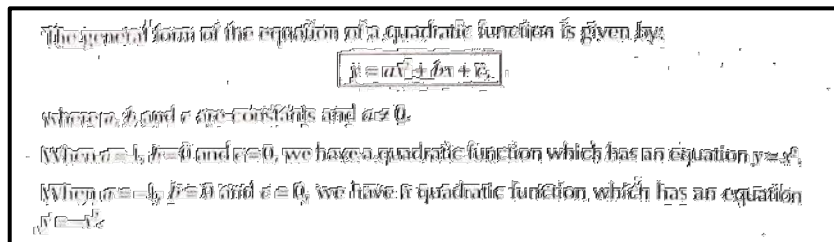 The general form of the equation of a quadratic function is given by:
y = ax² + bx + c,
where a, b and c are constants and a ≠ 0.
When a = 1, b = 0 and c = 0, we have a quadratic function which has an equation y = x².
When a = −1, b = 0 and c = 0, we have a quadratic function which has an equation
y = −x².